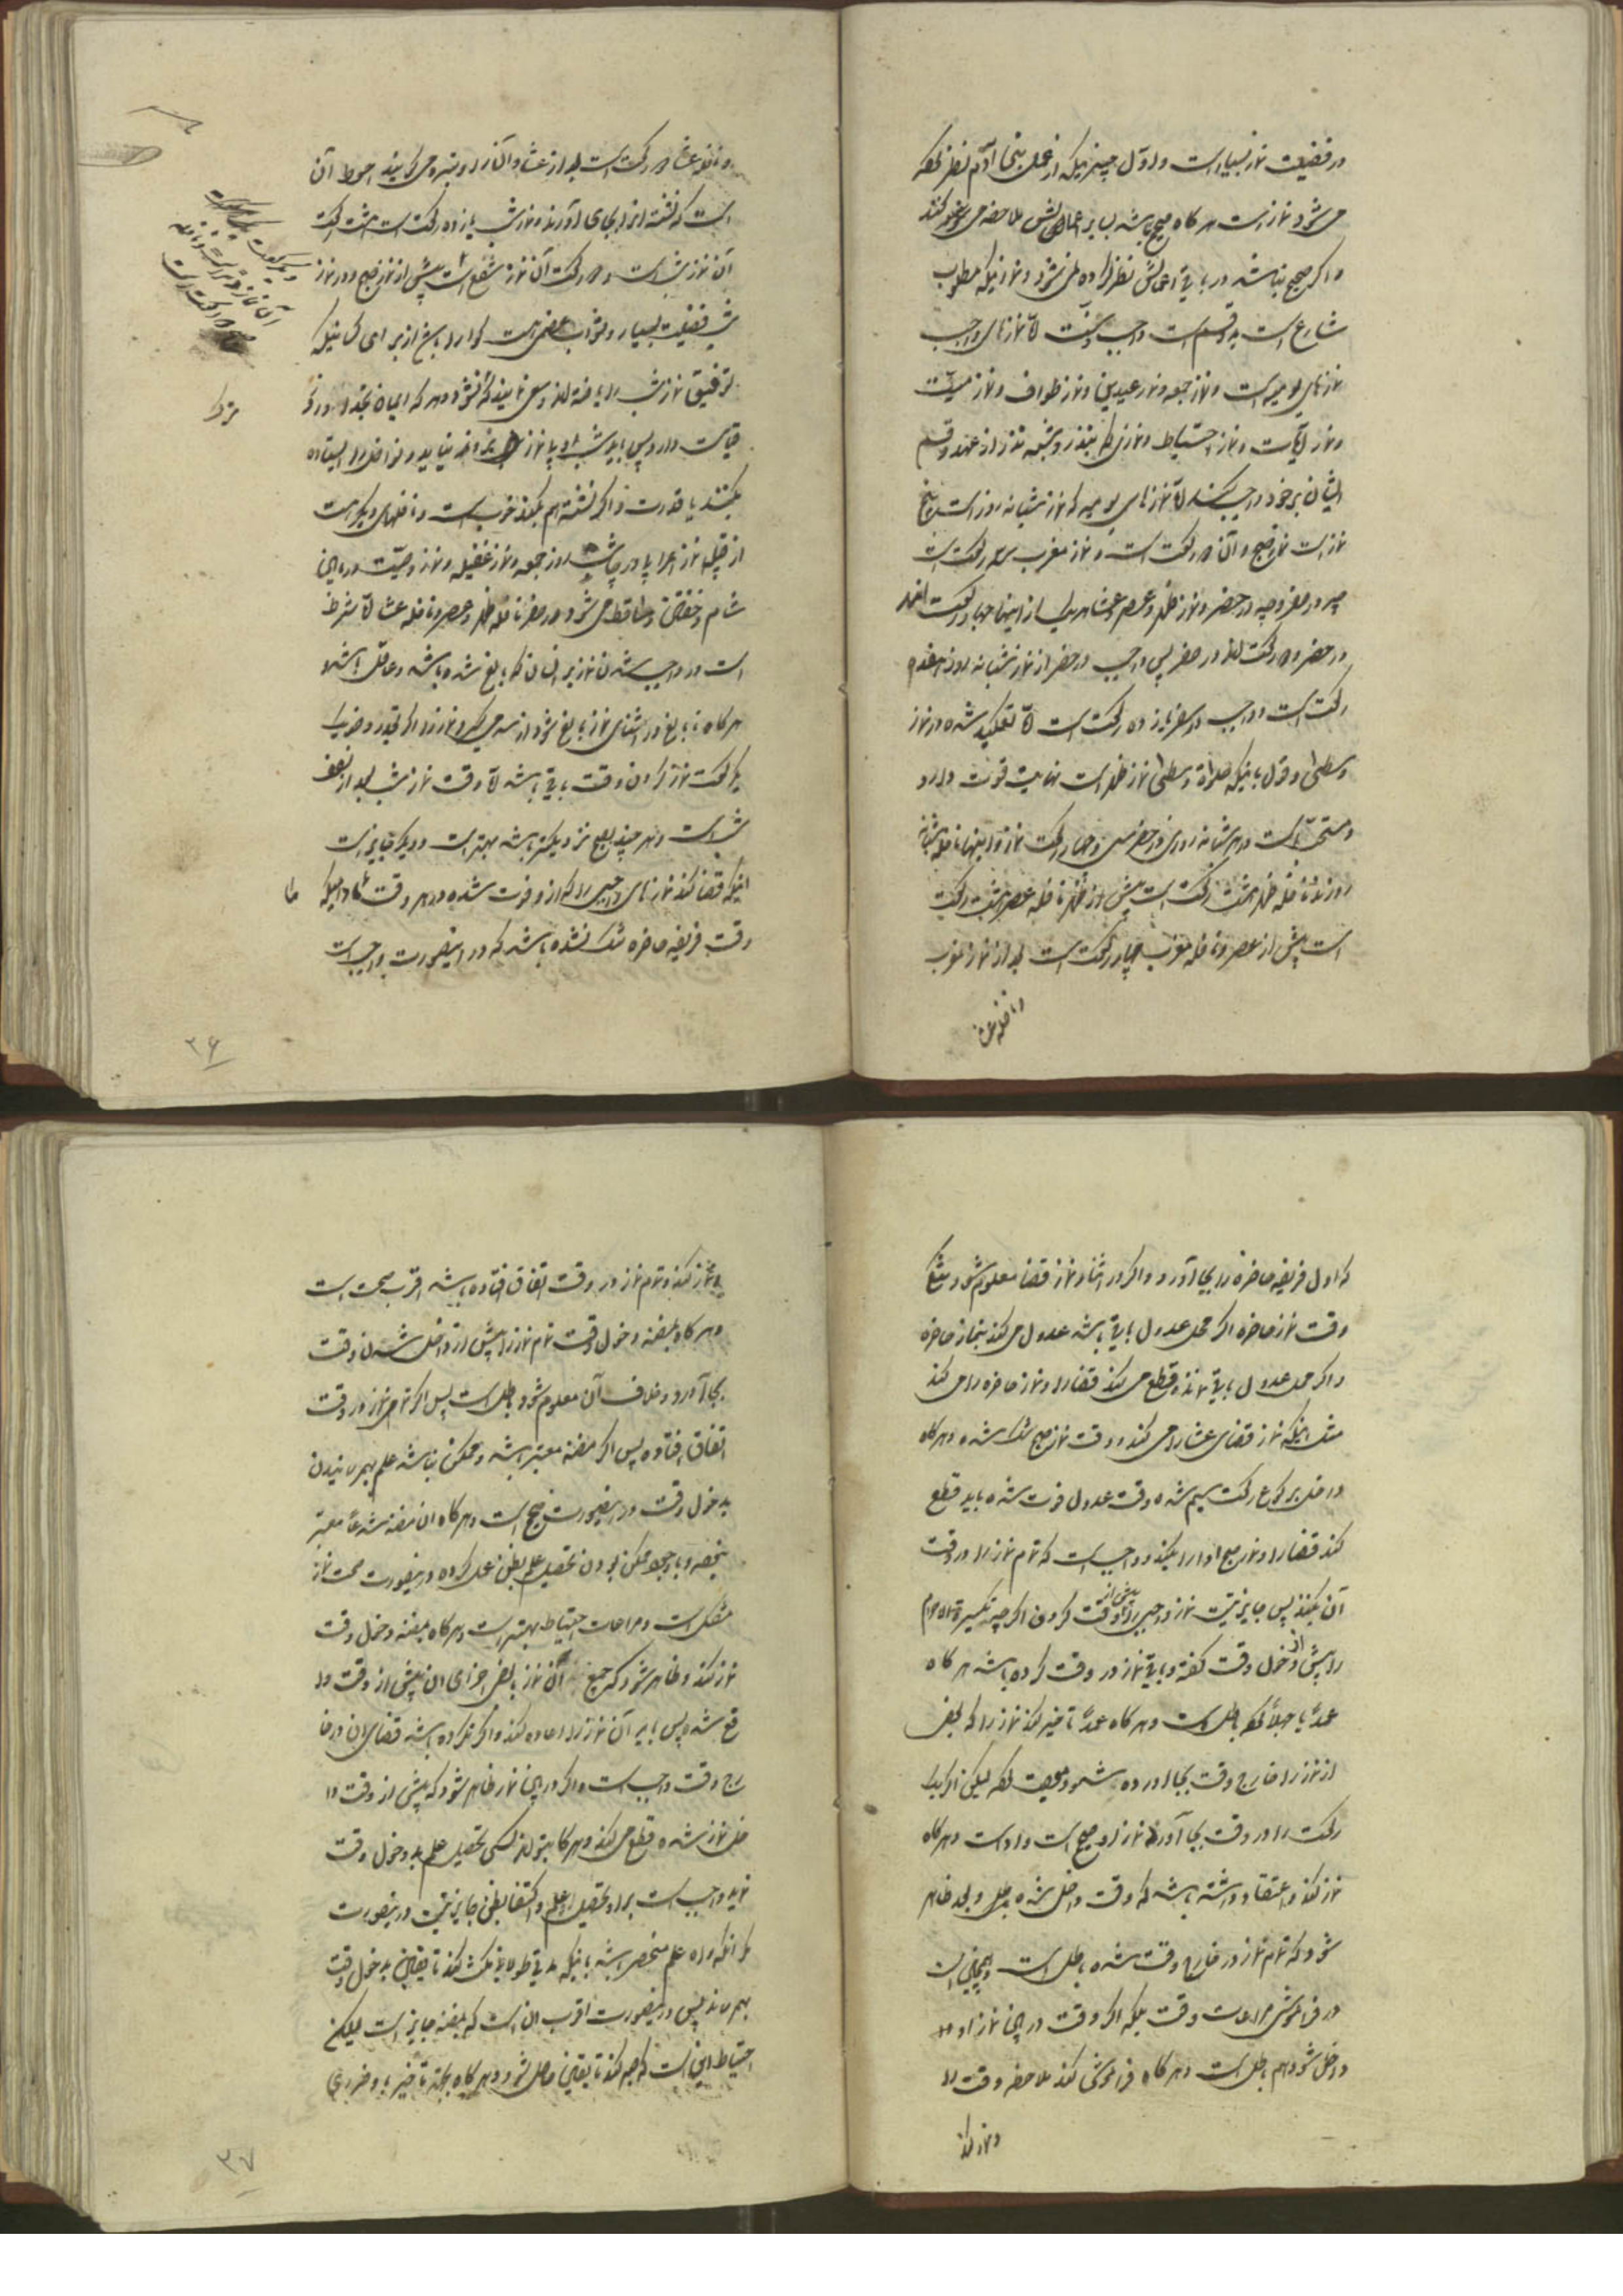 در فضیلت نماز بسیار است و اول چیزیکه از عمل بنی آدم نظر کرده
می شود نماز است هر کاه صحیح باشد بسایر اعمالش ملاحظه می
و اکر صحیح نباشد در باقی اعمالش نظر کرده نمی شود و نمازیکه مطلوب
شارع است بدو قسم است واجب و سنت امّا نمازهای واجب
نمازهای یومیه است و نماز جمعه و نماز عیدین و نماز طواف و نماز میّت
و نماز آیات و نماز احتیاط و نمازی که بنذر و شبه نذر از عهد و قسم
انسان بر خود واجب بکند امّا نمازهای یومیه که نماز شبانه روز است پنج
نماز است نماز صبح و آن دو رکعت است و نماز مغرب سه رکعت است
چه در سفر و چه در حضر و نماز ظهر و عصر و عشا هر یک از اینها چهار رکعت
در حضر و دو رکعت اند در سفر پس واجب در حضر از نماز شبانه روز هفده
رکعت است و واجب در سفر یازده رکعت است امّا تاکید شده در نماز
وسطی و قول باینکه صلواة وسطی نماز ظهر است نهایت قوت دارد
و مستحبّ است در هر شبانه روزی در حضر سی و چهار رکعت نماز و اینها نافله شبانه
روزند نافله ظهر هشت رکعت است پیش از ظهر نافله عصر هشت رکعت
است پیش از عصر و نافله مغرب چهار رکعت است بعد از نماز مغرب
و نافله عشا
و نافله عشا دو رکعت است بعد از عشا و آنرا وتیره می کویند احوط آن
است که نشسته انرا بجای آورند و نماز شب یازده رکعت است هشت رکعت
آن نماز شب است و دو رکعت آن نماز شفع است پیش از نماز صبح و در نماز
شب فضیلت بسیار و ثواب عظیمی است کوارا باش از برای کسانیکه
توفیق نماز شب را یافته اند و سعی نمایند که نشود و هر که ایمان بخدا و روز
قیامت دارد پس باید شب او با نماز بماند و نوافل را ایستاده
بکنند با قدرت و اکر نشسته هم بکند خوب است و نافلهای دیکر است
از قبیل نماز اعرابی در چاشت روز جمعه و نماز غفیله و نماز وصیّت در میان
شام و خفتن و ساقط می شود در سفر نافله ظهر و عصر و نافله عشا امّا شرط
است در واجب شدن نماز بر انسان که بالغ شده باشد و عاقل باشد و
هرکاه نابالغ در اثنای نماز بالغ شود از سر می کیرد نماز را اکر بقدر وضو و
یک رکعت نماز کردن وقت باقی باشد امّا وقت نماز شب بعد از نصف
شب است و هر چند بصبح نزدیکتر باشد بهتر است و دیکر جایز است
اینکه قضا کند نمازهای واجبی را که از او فوت شده در هر وقت مادامیکه
وقت فریضه حاضره تنک نشده باشد که در اینصورت واجب است
۳۶
که اول فریضه حاضره را بجا آورد و اکر در اثنای نماز قضا معلوم شود تنکی
وقت نماز حاضره اکر محل عدول باقی باشد عدول می کند بنماز حاضره
و اکر محل عدول باقی نماند قطع می کند قضا را و نماز حاضره را می کند
مثل اینکه نماز قضای عشا را می کند و وقت نماز صبح تنک شده و هرکاه
داخل رکوع رکعت سیم شده وقت عدول فوت شده باید قطع
کند قضا را و نماز صبح ادا را بکند و واجب است که تمام نماز را در وقت
آن بکند پس جایز نیست نماز واجبی را پیش از وقت کردن اکر چه تکبیرة الاحرام
را پیش از دخول وقت کفته و باقی نماز در وقت کرده باشد هرکاه
عمداً یا جهلاً کرده باطل است و هرکاه عمداً تاخیر کند نماز را که بعضی
از نماز را خارج وقت بجا آورده باشد معصیت کرده لیکن اکر یک
رکعت را در وقت بجا آورد نماز او صحیح است و ادا است و هرکاه
نماز کند و اعتقاد داشته باشد که وقت داخل شده و بعد ظاهر
شود که تمام نماز در خارج وقت شده باطل است و همچنین است
در فراموشی مراعات وقت بلکه اکر وقت در میان نماز او
داخل شود هم باطل است و هرکاه فراموشی کند ملاحظه وقت را
و نماز کند
و نماز کند و تمام نماز در وقت اتفاق افتاده باشد اقرب صحت است
و هرکاه بمظنه دخول وقت تمام نماز را پیش از داخل شدن وقت
بجا آورد و خلاف آن معلوم شود باطل است پس اکر تمامی نماز در وقت
اتفاق افتاده پس اکر مظنه معتبر باشد و ممکن نباشد علم بهم رسانیدن
بدخول وقت در اینصورت صحیح است و هرکاه ان مظنه شرعاً معتبر
نبوده و با وجود ممکن بودن تحصیل علم بظن عمل کرده در اینصورت صحت نماز
مشکل است و مراعات احتیاط بهتر است و هرکاه بمظنه دخول وقت
نماز کند و ظاهر شود که جمیع آن نماز یا بعض اجزای ان پیش از وقت وا
قع شده پس باید آن نماز را اعاده کند و اکر نکرده باشد قضای ان در خا
رج وقت واجب است و اکر در میان نماز ظاهر شود که پیش از وقت دا
خل نماز شده قطع می کند و هرکاه بتواند کسی تحصیل علم بدخول وقت
نماید واجب است بر او تحصیل علم و اکتفا بظن جایز نیست در اینصورت
مکر انکه راه علم منحصر باشد باینکه مدتی طولانی مکث کند تا یقین بدخول وقت
بهم رساند پس در اینصورت اقرب ان است که بمظنه جایز است لیکن
احتیاط این است که صبر کند تا یقین حاصل شود و هرکاه بجهة تاخیر باو ضرری
۳۷